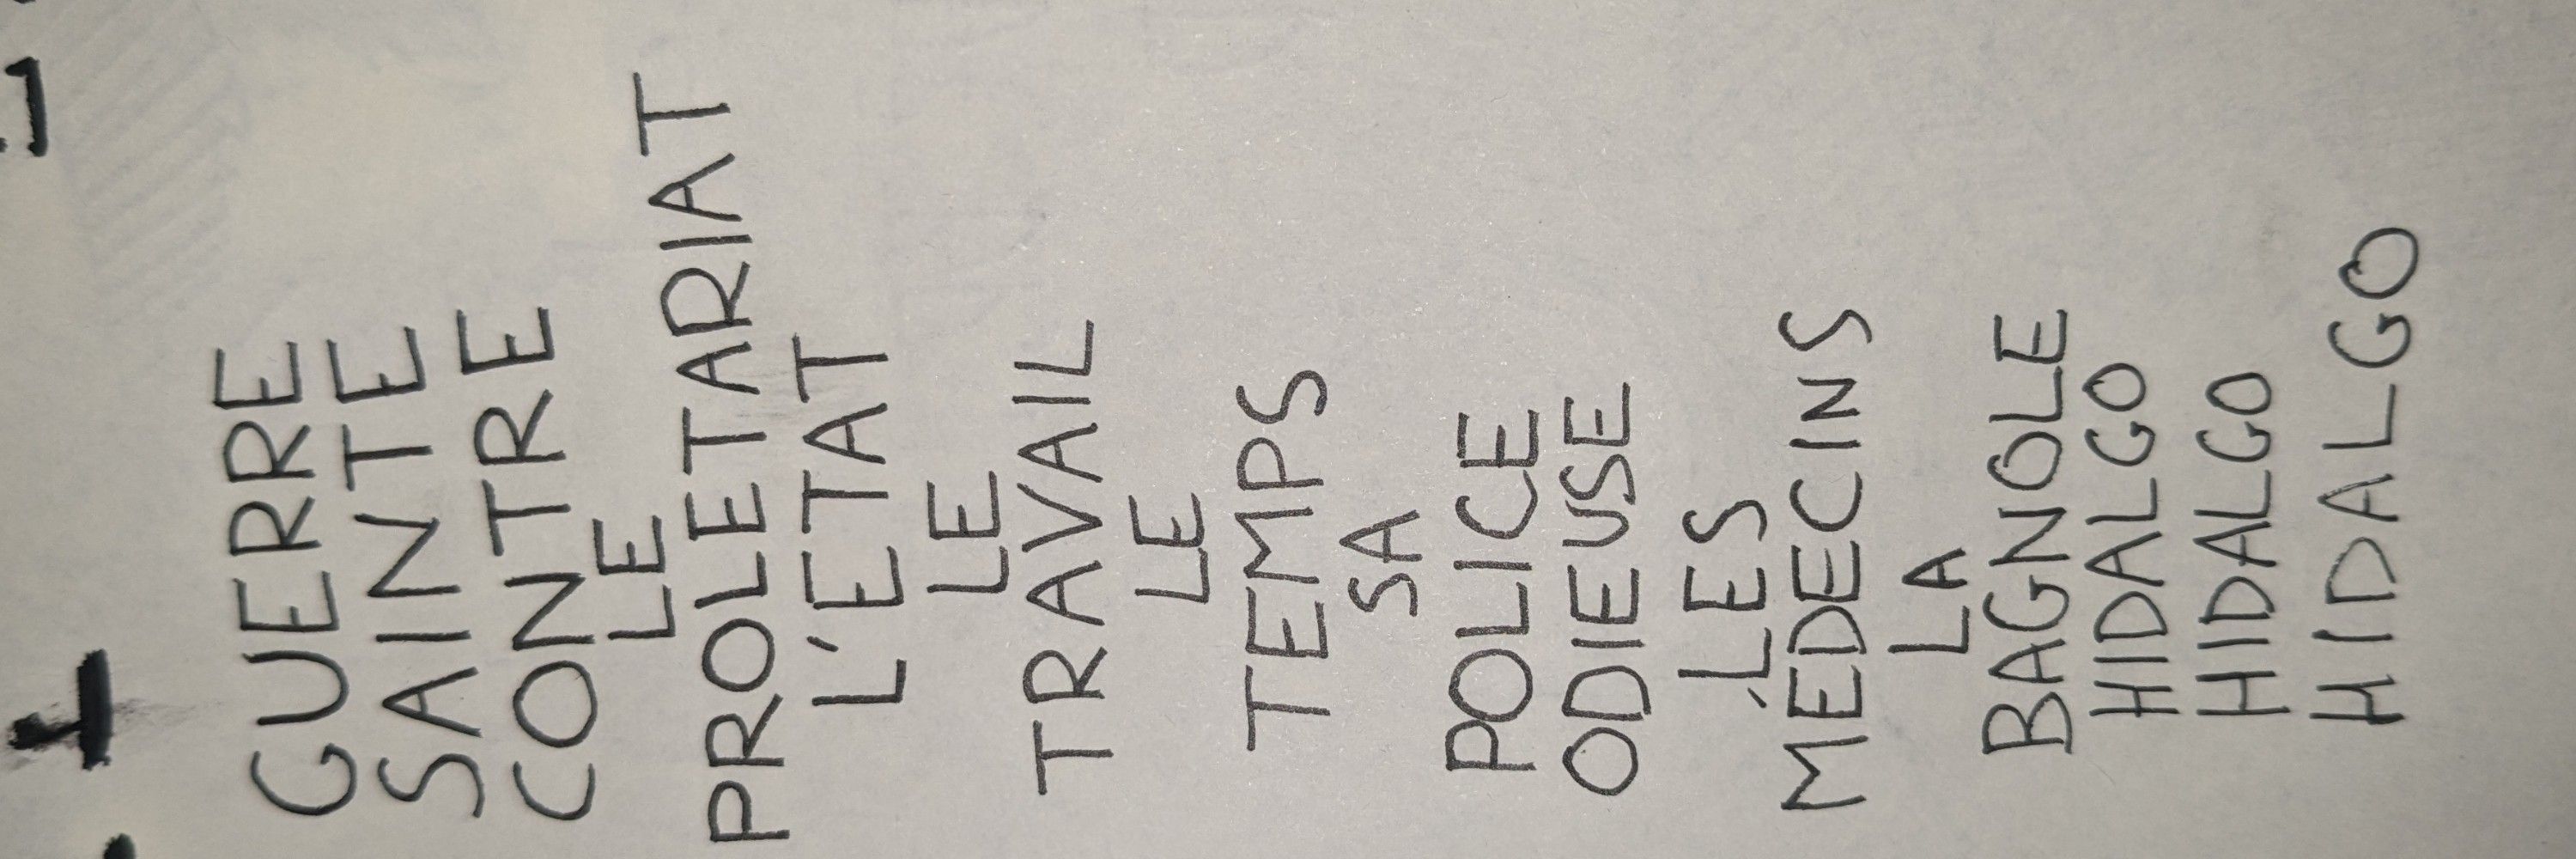 GUERRE
SAINTE
CONTRE
LE
PROLETARIAT
L'ETAT
LE
TRAVAIL
LE
TEMPS
SA
POLICE
ODIEUSE
LES
MÉDECINS
LA
BAGNOLE
HIDALGO
HIDALGO
HIDALGO